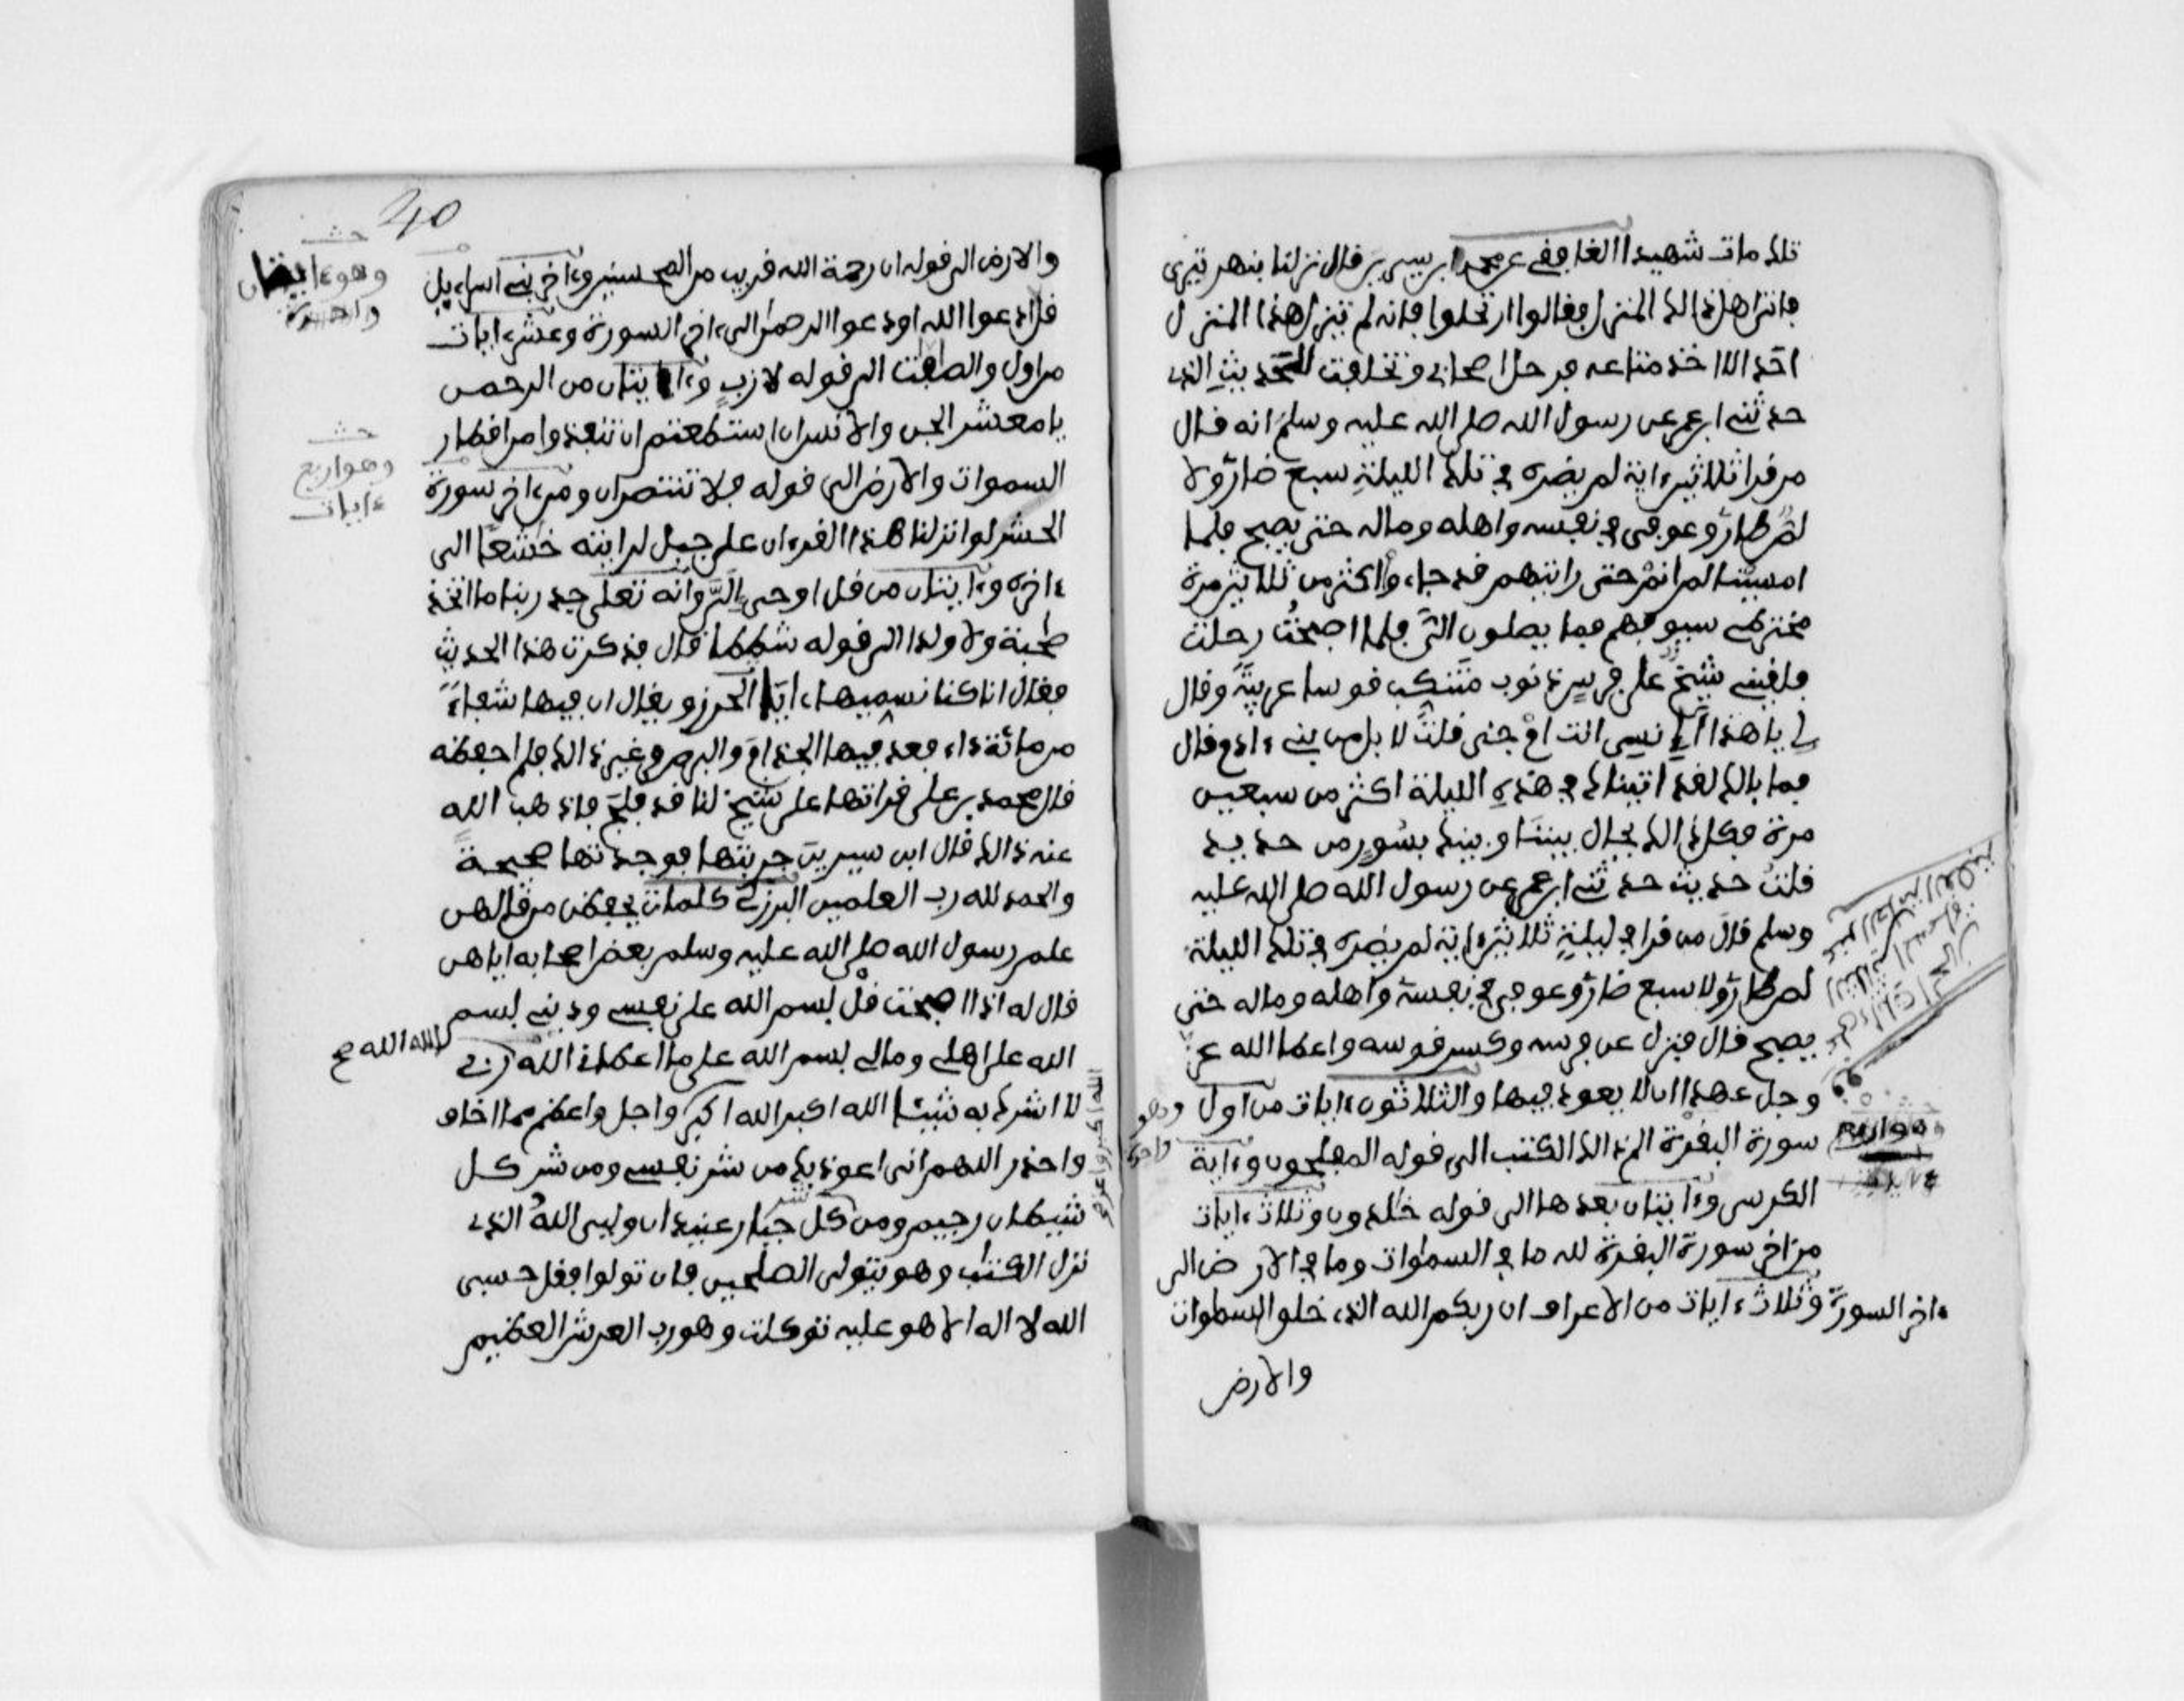 تلك مات شهيدا الغافقي عن محمد ابن سيرين قال نزلنا بنهر تيرى
فاتى اهل ذالك المنزل فقالوا ارتحلوا فانه لم ينزل هذا المنزل
احد الا اخذ متاعه فرحل اصحابي وتخلفت للحديث الذي
حدثني ابن عمر عن رسول الله صلى الله عليه وسلم انه قال
من قرا ثلاثين ءاية لم يضره في تلك الليلة سبع ضار ولا
لص طار وعوفي في نفسه واهله وماله حتى يصبح فلما
امسينا لم انم حتى رايتهم قد جاءوا اكثر من ثلاثين مرة
مخترطي سيوفهم فما يصلون الي فلما اصبحت رحلت
فلقيني شيخ على فرس ذنوب متنكب قوسا عربية وقال
لي يا هذا انسي انت ام جني قلت لا بل من بني ءادم قال
فما بالك لقد اتيناك في هذه الليلة اكثر من سبعين
مرة فكل ذالك يحال بيننا وبينك بسور من حديد
قلت حديث حدثني ابن عمر عن رسول الله صلى الله عليه
وسلم قال من قرا في ليلة ثلاثين ءاية لم يضره في تلك الليلة
لص طار ولا سبع ضار وعوفي في نفسه واهله وماله حتى
يصبح قال فنزل عن فرسه وكسر قوسه واعطا الله عز
وجل عهدا ان لا يعود فيها والثلاثون ءايات من اول
سورة البقرة الم ذالك الكتب الى قوله المفلحون وءاية
الكرسي وءايتان بعدها الى قوله خلدون وثلاث ءايات
من ءاخر سورة البقرة لله ما في السموات وما في الارض الى
ءاخر السورة وثلاث ءايات من الاعراف ان ربكم الله الذي خلق السموات
والارض
وهو اربع
ءايات
وهو
واحدة
40
والارض الى قوله ان رحمة الله قريب من المحسنين وءاخر بني اسراءيل
قل ادعوا الله او ادعوا الرحمن الى ءاخر السورة وعشر ءايات
من اول والصفت الى قوله لازب وءايتان من الرحمن
يا معشر الجن والانس ان استطعتم ان تنفذوا من اقطار
السموات والارض الى قوله فلا تنتصران ومن ءاخر سورة
الحشر لو انزلنا هذا القرءان على جبل لرايته خشعا الى
ءاخره وءايتان من قل اوحي الي وانه تعلى جد ربنا ما اتخذ
صحبة ولا ولدا الى قوله شططا قال فذكرت هذا الحديث
فقال انا كنا نسميها ءايات الحرز ويقال ان فيها شفاء
من مائة داء فعد فيها الجذام والبرص وغير ذالك فلم احفظه
قال محمد بن علي قراتها على شيخ لنا قد فلج فاذهب الله
عنه ذالك قال ابن سيرين جربتها فوجدتها صحيحة
والحمد لله رب العلمين البرزلي كلمات يحفظن من قالهن
علم رسول الله صلى الله عليه وسلم بعض اصحابه اياهن
قال له اذا اصبحت قل بسم الله على نفسي وديني بسم
الله على اهلي ومالي بسم الله على ما اعطاني الله ربي
لا اشرك به شيئا الله اكبر الله اكبر واجل واعظم مما اخاف
واحذر اللهم اني اعوذ بك من شر نفسي ومن شر كل
شيطان رجيم ومن شر كل جبار عنيد ان وليي الله الذي
نزل الكتب وهو يتولى الصلحين فان تولوا فقل حسبي
الله لا اله الا هو عليه توكلت وهو رب العرش العظيم
وهو ءايتان
واحدة
وهو اربع
ءايات
الله الله صح